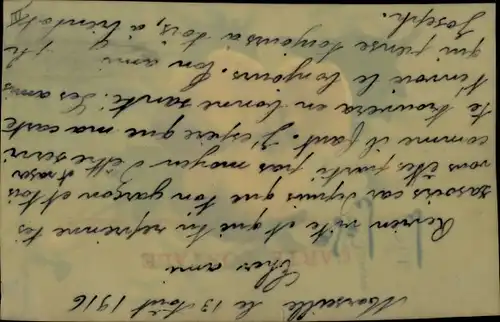 Marseille le 13 Août 1916
Cher ami
Revien vite et que tu reprenne tes
rasoirs car depuis que ton garçon et toi
vous êtes parti pas moyen d'être servi
et rasé
comme il faut. J'espère que ma carte
te trouvera en bonne santé. Les amis
t'envoi le bonjour. Ton ami
qui pense toujours à toi, a bientôt
Joseph.
CARTE POSTALE